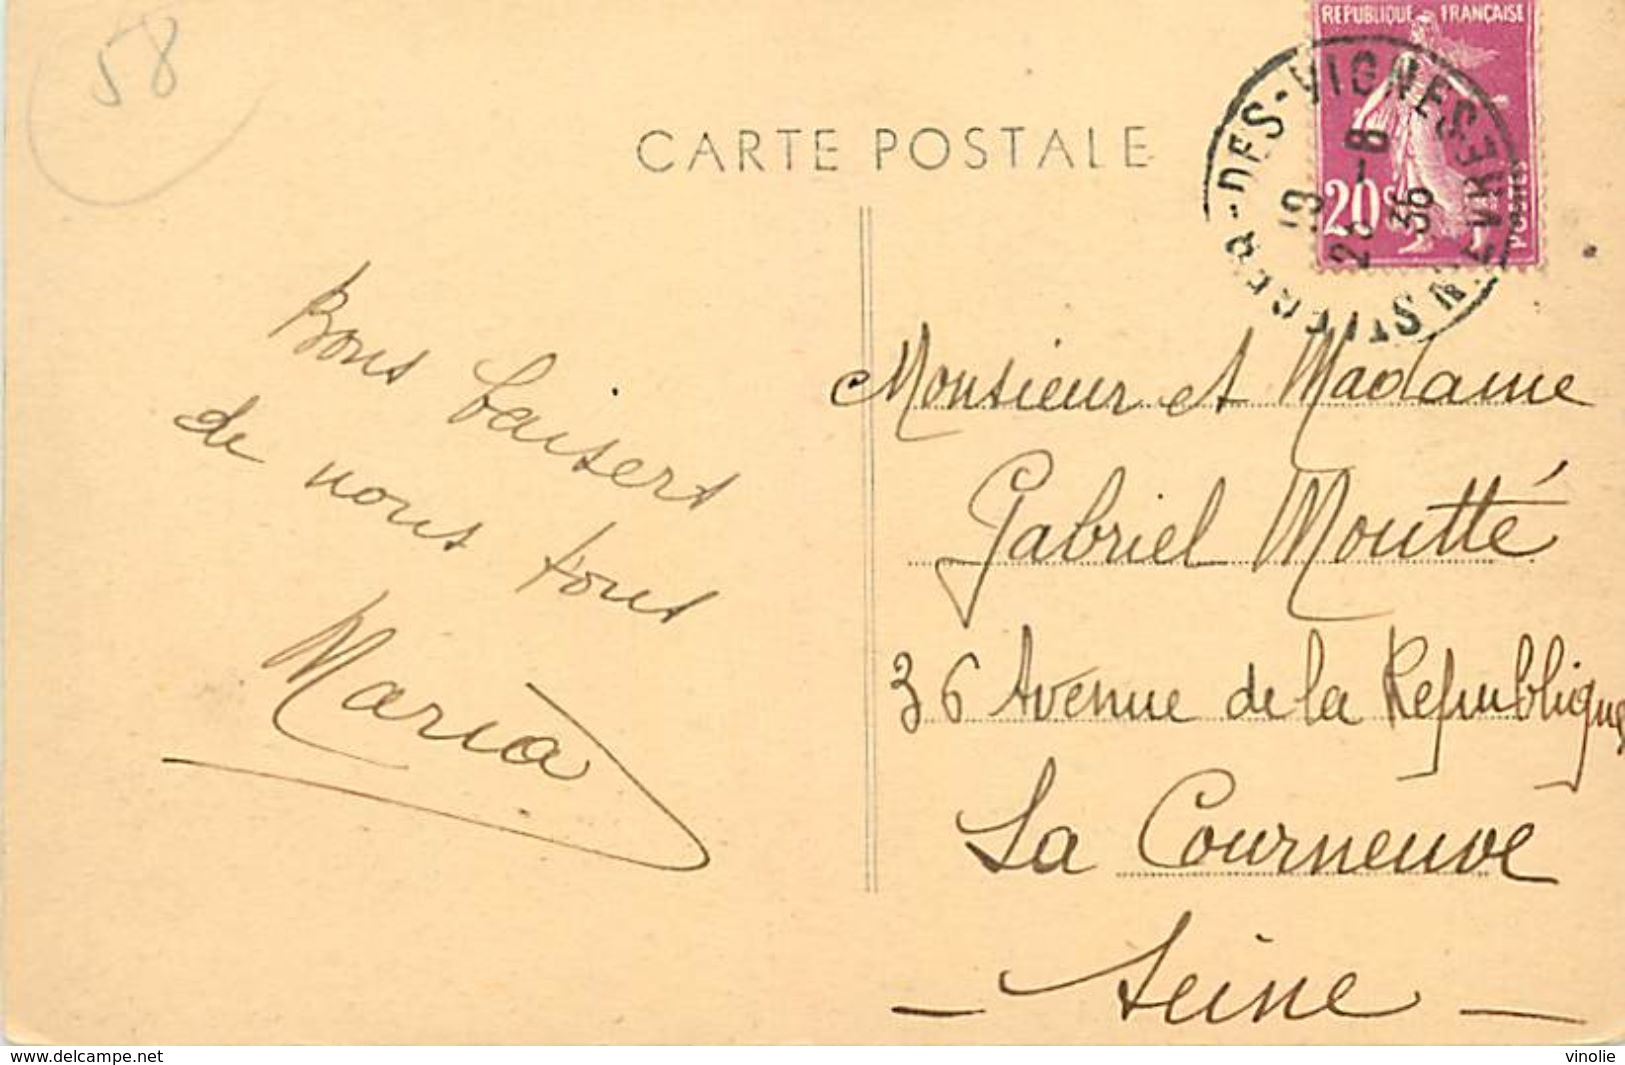 58
CARTE POSTALE
REPUBLIQUE FRANÇAISE
20c
POSTES
-DES-VIGNES
NIEVRE
19
2 -8
36
Bons baisers
de nous tous
Maria
Monsieur et Madame
Gabriel Moutté
36 Avenue de la Republique
La Courneuve
- Seine -
www.delcampe.net
vinolie